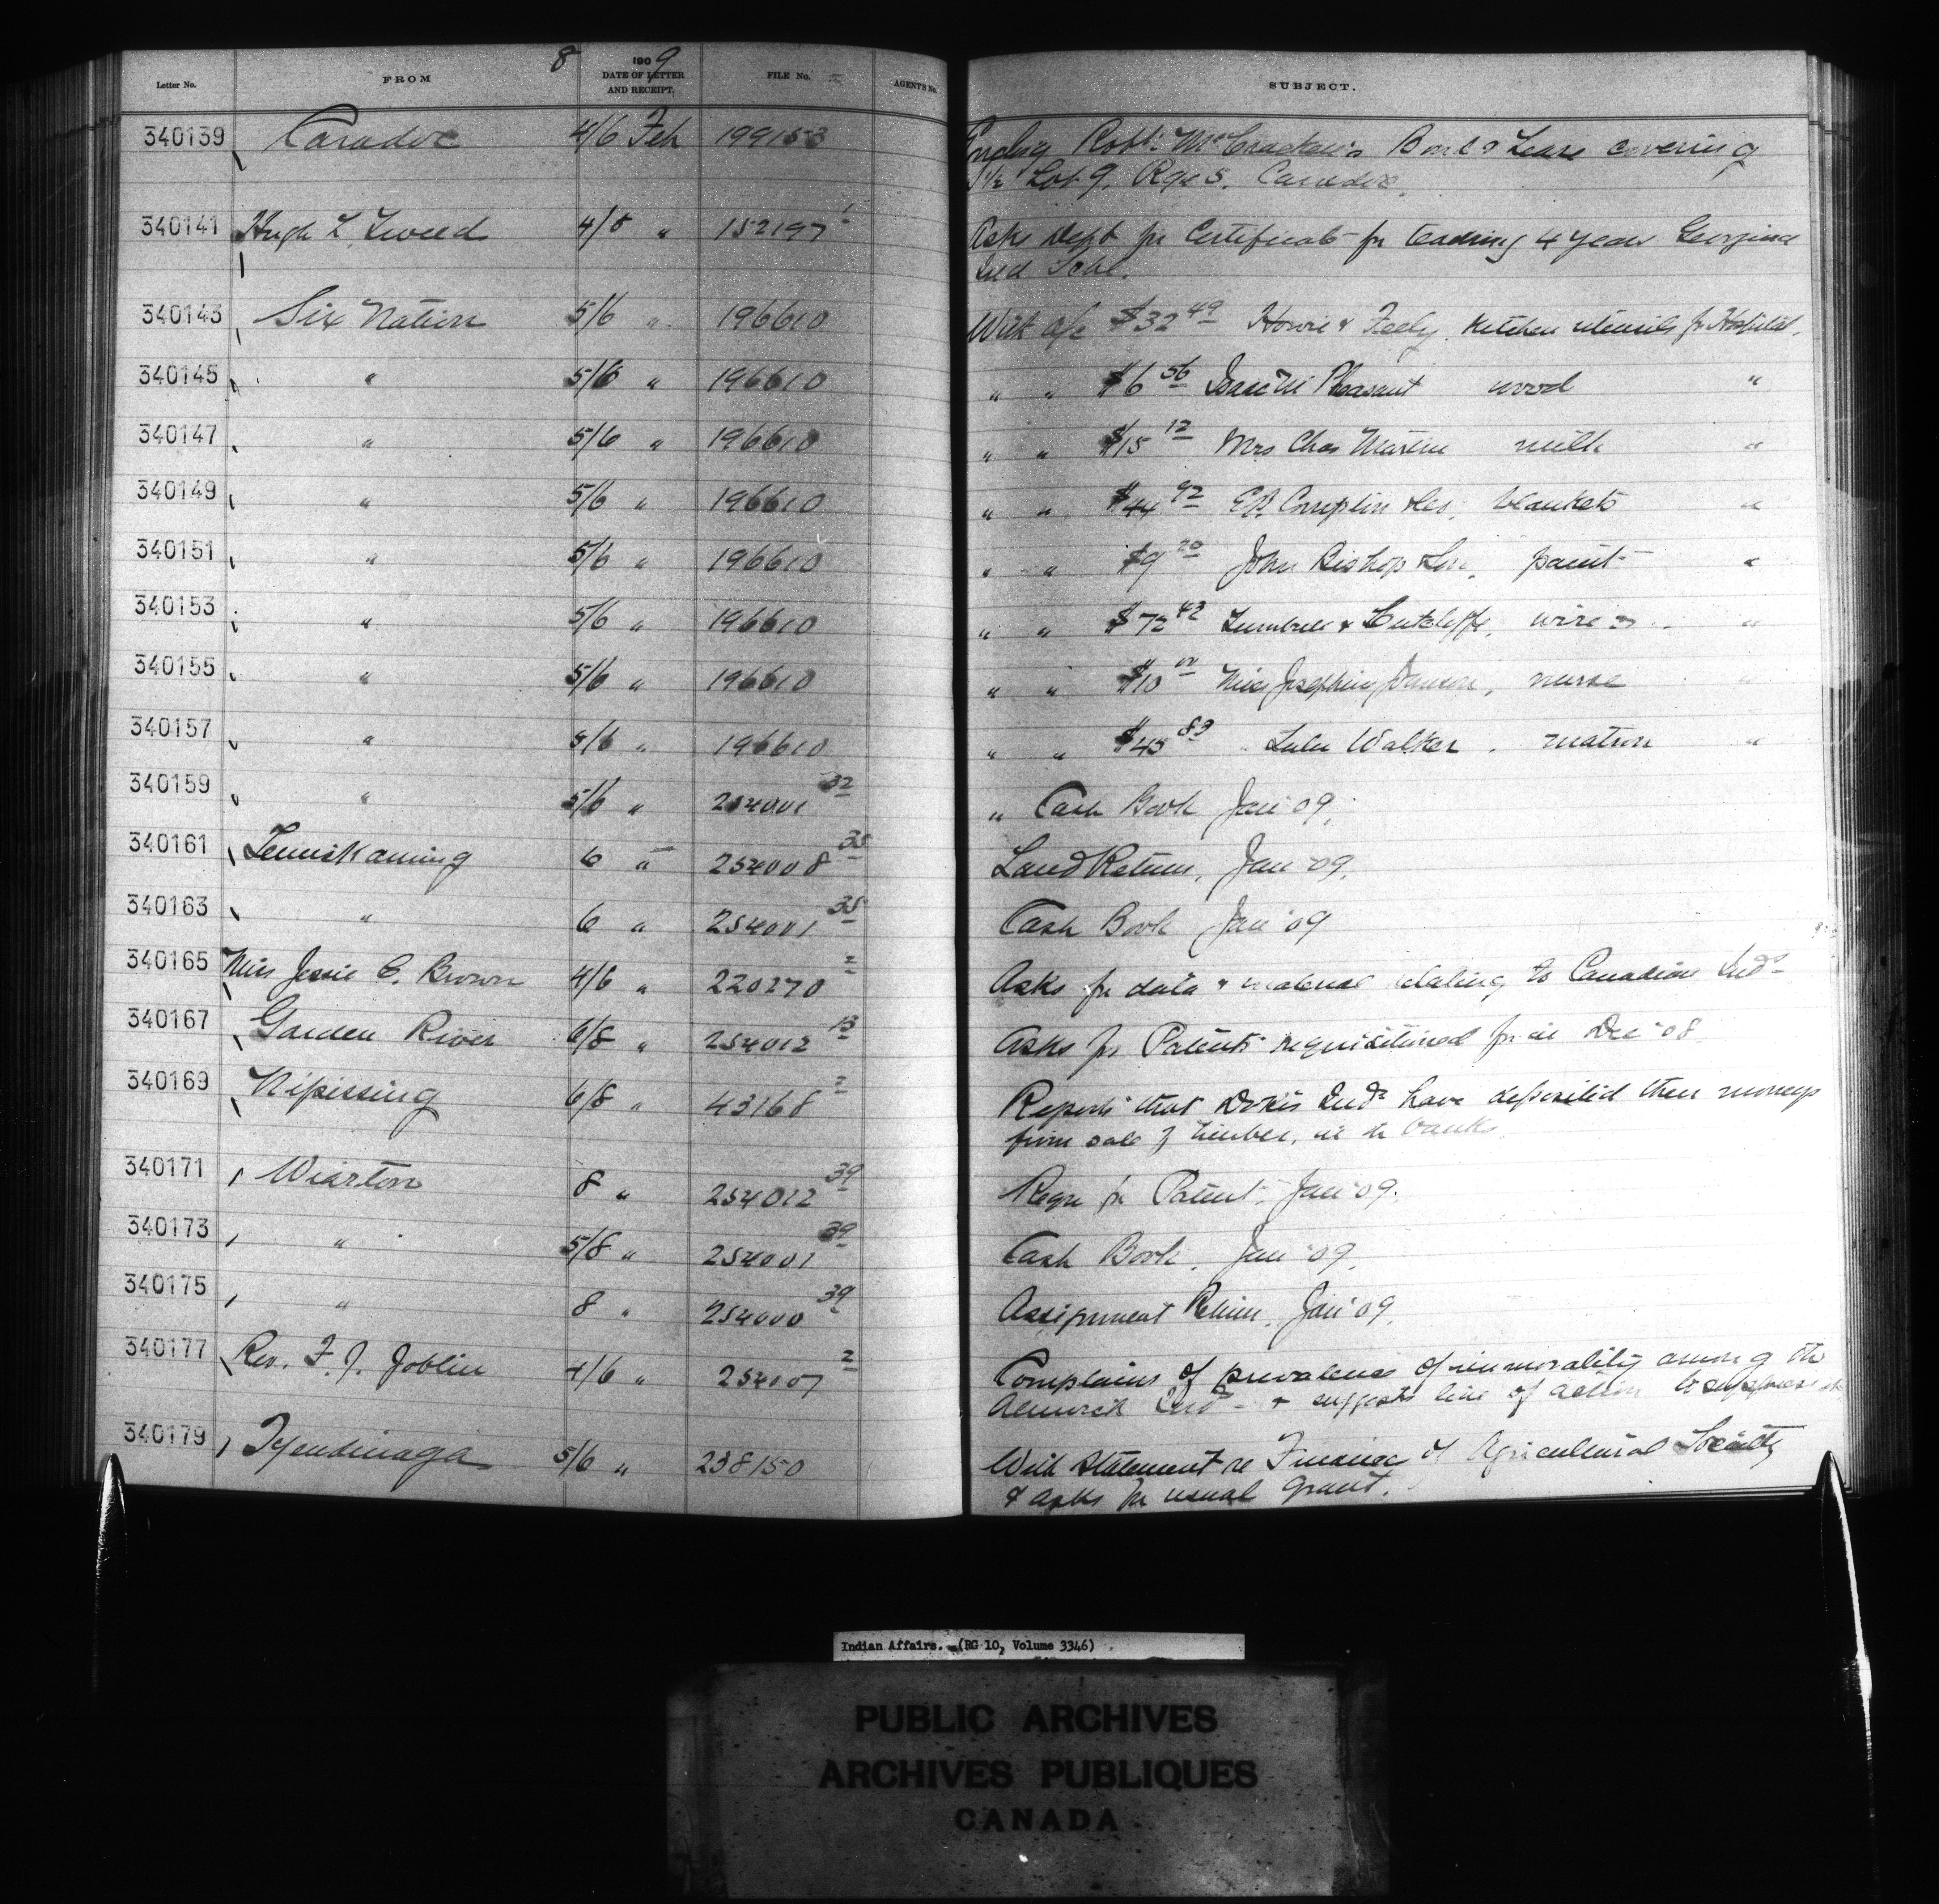 8
Letter No. FROM 1909 DATE OF LETTER AND RECEIPT. FILE No. AGENT'S No. SUBJECT.
340139 Caradoc 4/6 Feb 199153 Robt. McCracken's Bond & Lease covering
Lot 9, Rge 5, Caradoc.
340141 Hugh L. Tweed 4/5 " 152197 1 Asks Dept for Certificate for teaching 4 years Georgina
Ind Schl.
340143 Six Nation 5/6 " 196610 With a/c $32 49 Howie & Feely. Kitchen utensils for Hospital.
340145 " 5/6 " 196610 " " $6 56 Isaac Pheasant wood "
340147 " 5/6 " 196610 " " $15 12 Mrs Chas Martin milk "
340149 " 5/6 " 196610 " " $44 92 E.B. Crompton & Co. blankets "
340151 " 5/6 " 196610 " " $9 20 John Bishop & Son, paint "
340153 " 5/6 " 196610 " " $72 42 Turnbull & Cutcliffe, wire "
340155 " 5/6 " 196610 " " $10 00 Miss Josephine, nurse "
340157 " 5/6 " 196610 " " $45 83 Lulu Walker. matron "
340159 " 5/6 " 254001 32 " Cash Book Jan '09,
340161 Temiskaming 6 " 254008 35 Land Return, Jan '09.
340163 " 6 " 254001 35 Cash Book Jan '09
340165 Miss Jessie C. Brown 4/6 " 220270 2 Asks for data & material relating to Canadian Inds
340167 Garden River 6/8 " 254012 13 Asks for Patents requisitioned for in Dec '08
340169 Nipissing 6/8 " 43168 2 Reports that Dokis Inds have deposited their moneys
from sale of timber, in the bank.
340171 Wiarton 8 " 254012 39 Reqn for Patent, Jan '09.
340173 " 5/8 " 254001 39 Cash Book, Jan '09.
340175 " 8 " 254000 39 Assignment Return, Jan '09.
340177 Rev. F. J. Joblin 4/6 " 254007 2 Complains of prevalence of immorality among the
Alnwick Inds & suggests line of action to suppress
340179 Tyendinaga 5/6 " 238150 With statement re Finance of Agricultural Society
& asks for usual grant.
Indian Affairs. (RG 10, Volume 3346)
PUBLIC ARCHIVES
ARCHIVES PUBLIQUES
CANADA